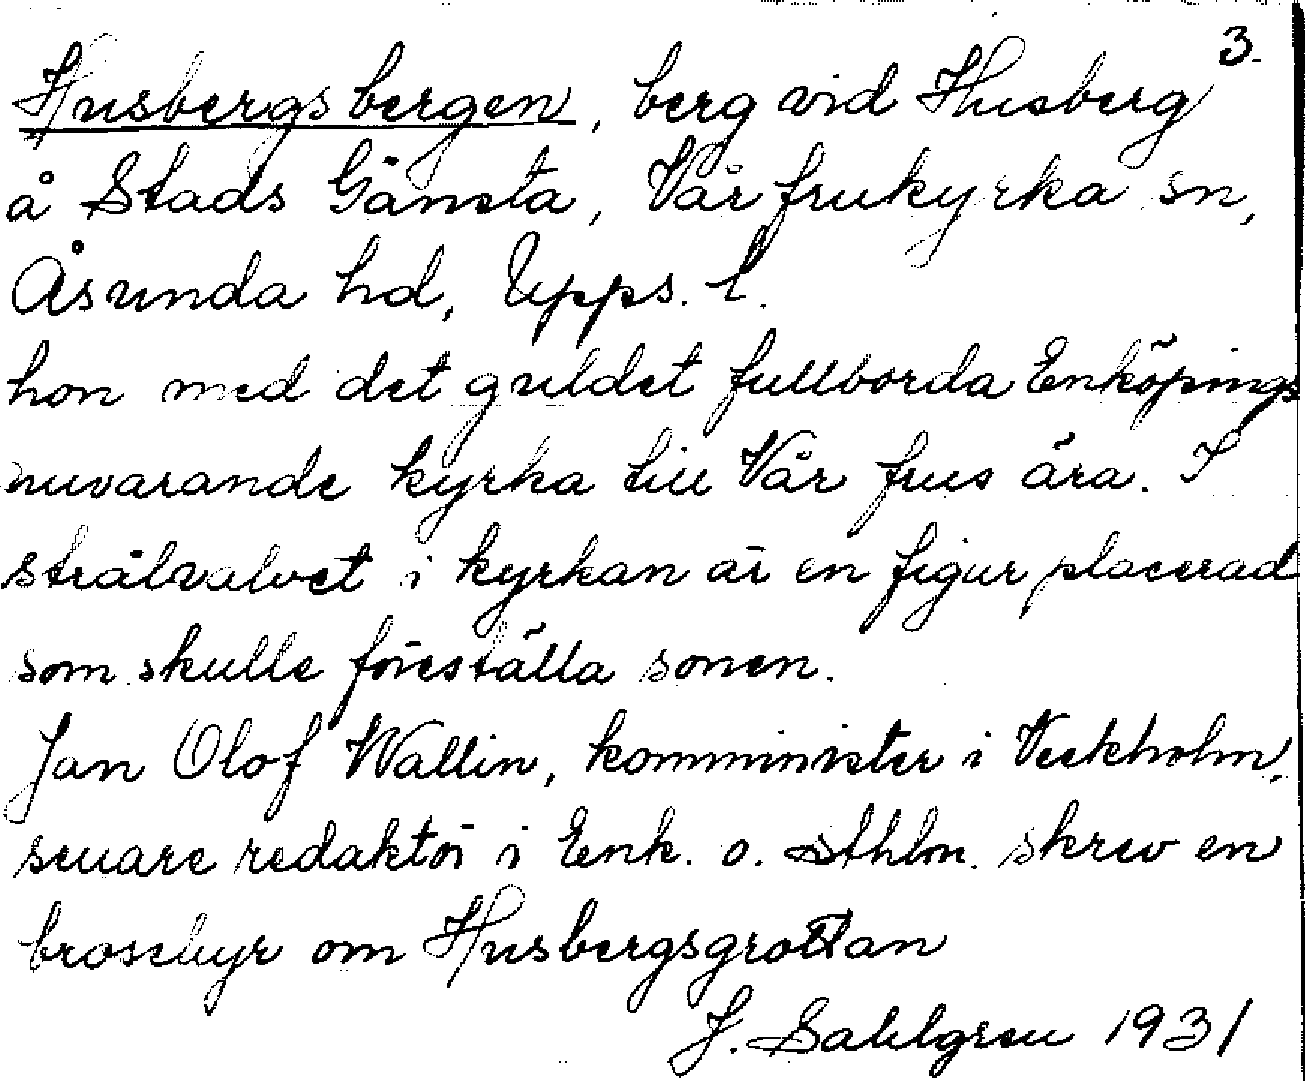 3.
Husbergsbergen, berg vid Husberg
å Stads Gänsta, Vårfrukyrka sn,
Åsunda hd, Upps. l.
hon med det guldet fullborda Enköpings
nuvarande kyrka till Vår frus ära. I
strålvalvet i kyrkan är en figur placerad
som skulle föreställa sonen.
Jan Olof Wallin, komminister i Veckholm,
senare redaktör i Enk. o. Sthlm. skrev en
broschyr om Husbergsgrottan
J. Sahlgren 1931